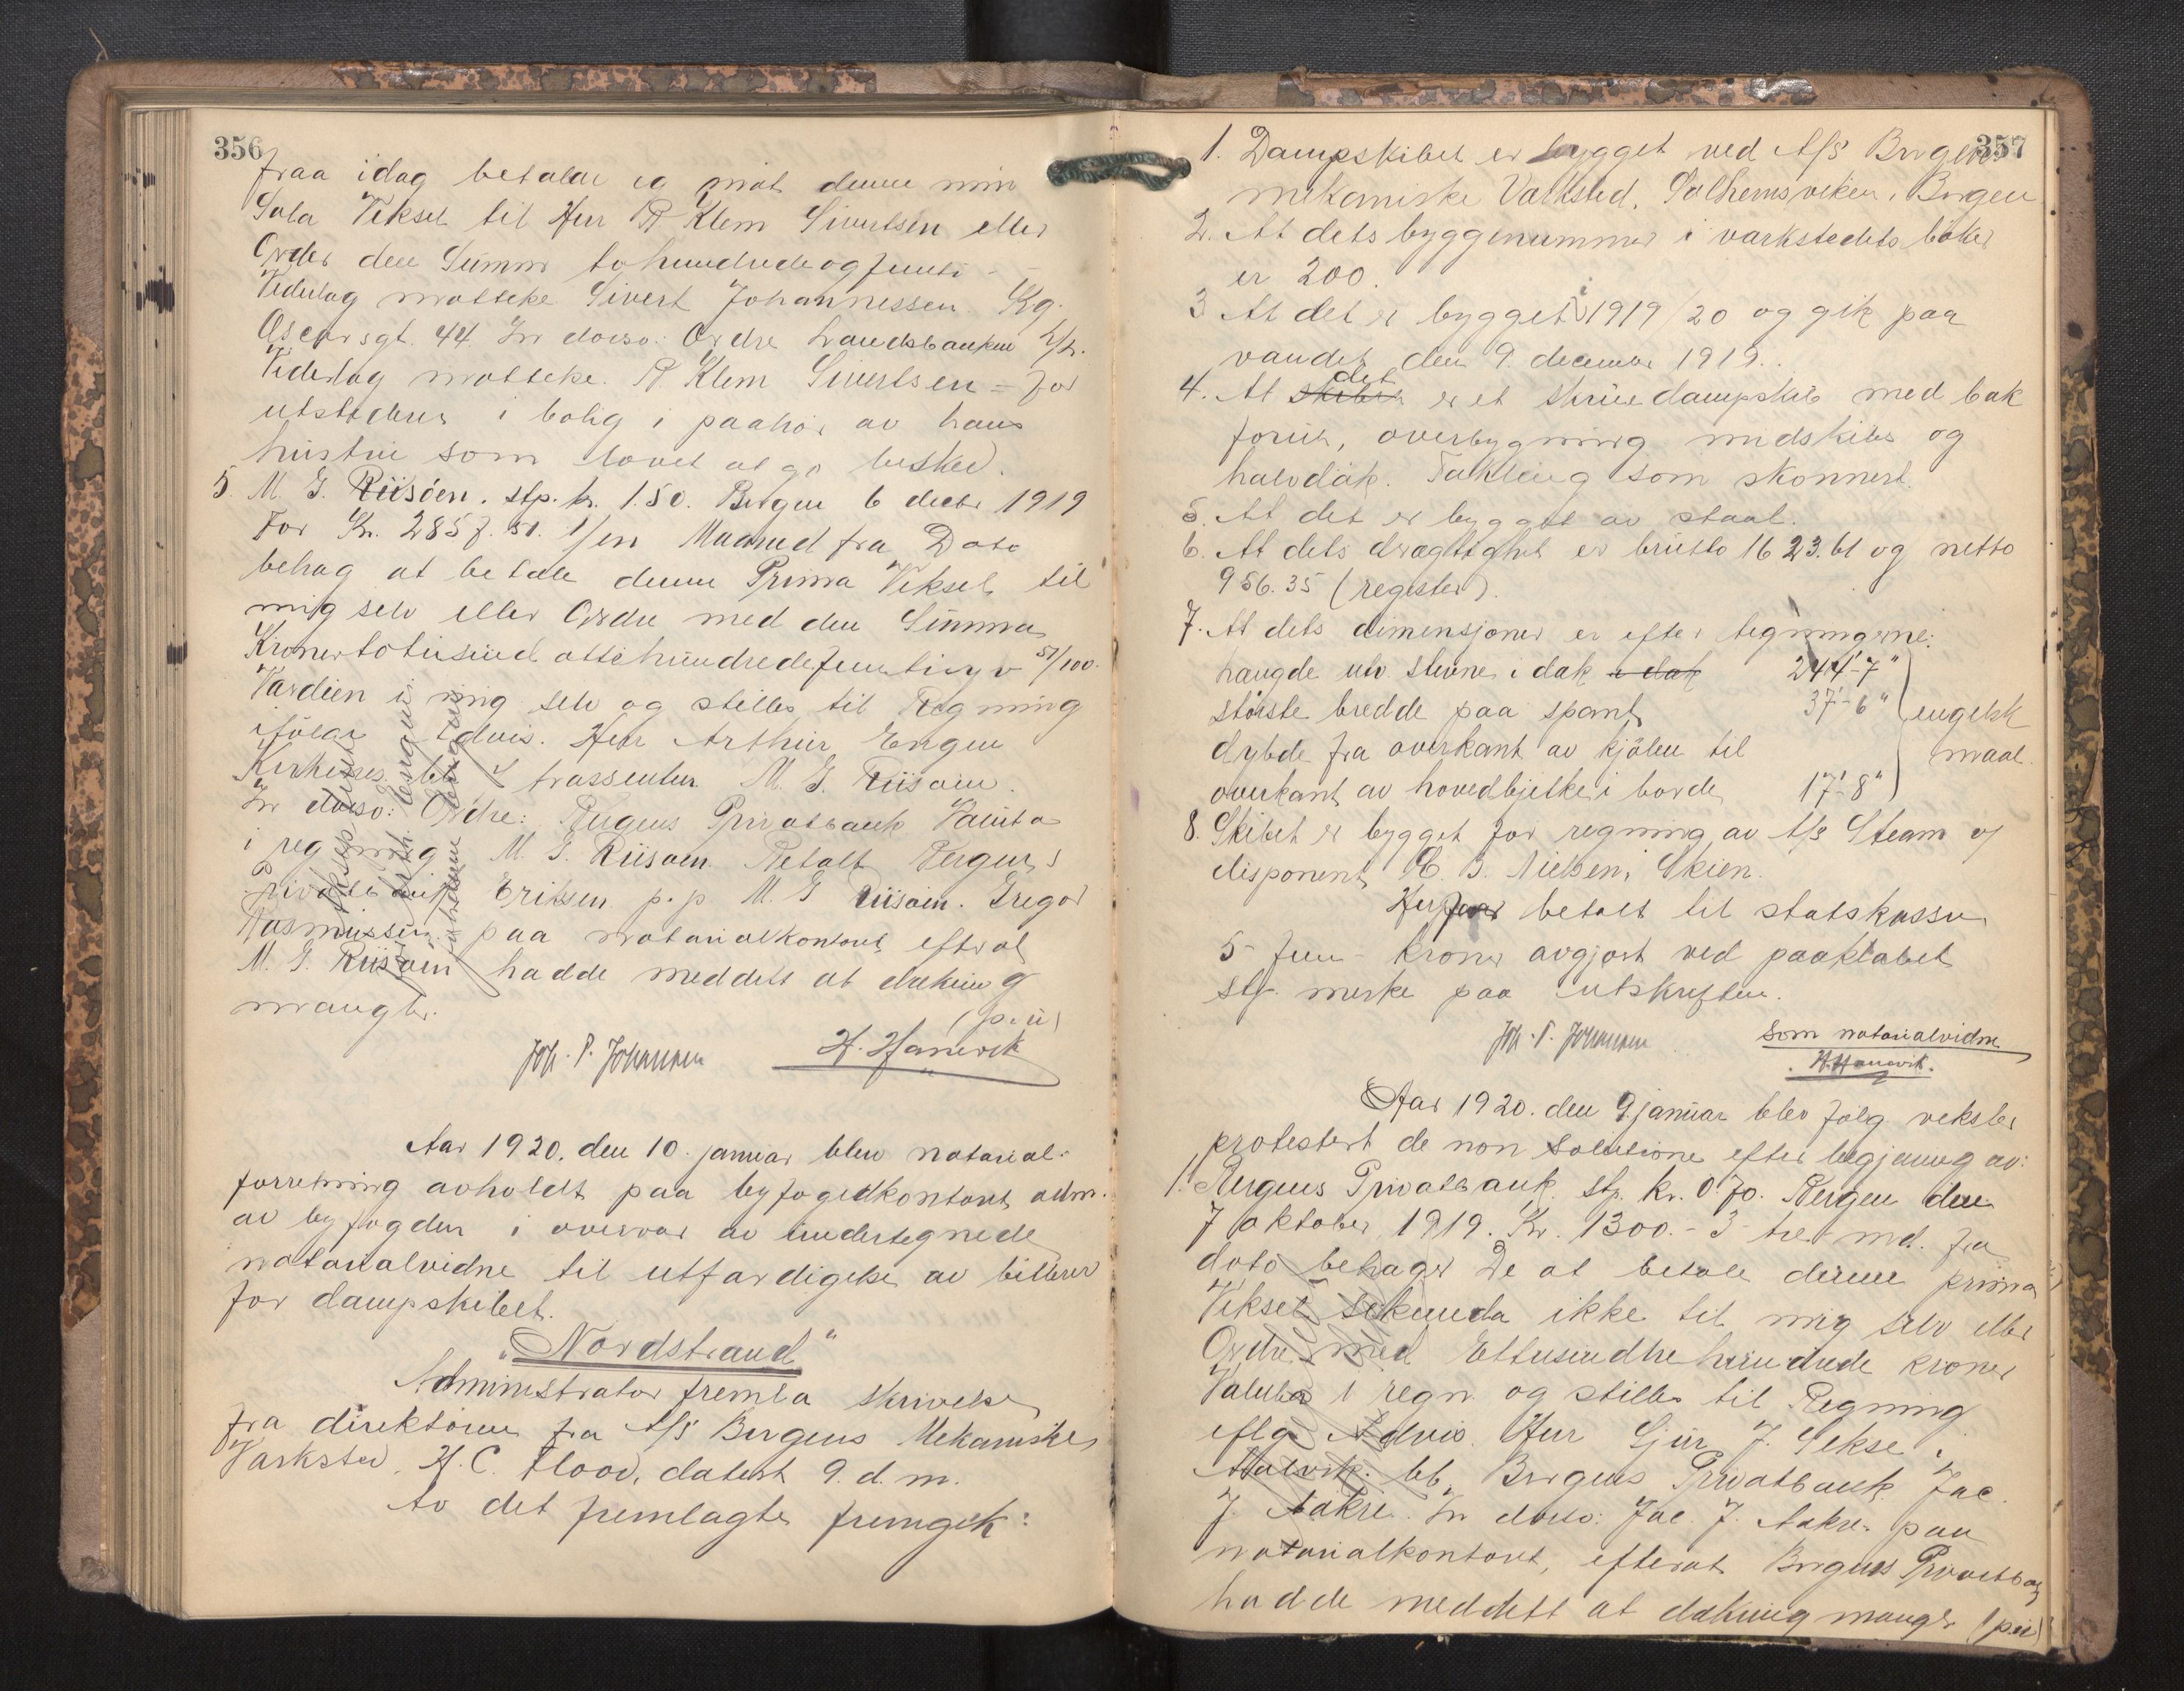 356
fraa idag betaler eg mot denne min
Sola Veksel til Herr R Klem Sivertsen eller
Order den Summa tohundredeogfemti - -
Vederlag motteke Sivert Johannessen. Kg.
Oscarsgt. 44 In dorso: Ordre Landsbanken
Vederlag motteke. R Klem Sivertsen = for
utstederen i bolig i paahör av hans
hustru som lovet at gi besked.
5. M. G. Riisöen. stp. kr. 1.50. Bergen 6 decbr 1919
For Kr. 2857.51. 1/en Maaned fra Dato
behag at betale denne Prima Veksel til
mig selv eller Ordre med den Summa
Kroner totusind ottehundredefemtisyv 51/100.
Værdien i mig selv og stilles til Regning
ifölge Advis. Herr Arthur Engen
Kirkenes. bb trassenten M. G. Riisöen.
In dorso: Ordre: Bergens Privatbank Valuta
i regning M. G. Riisöen. Betalt Bergens
Privatbank Eriksen p.p M. G Riisöen. Gregor
Rasmussen paa notarialkontoret efterat
M. G. Riisöen hadde meddelt at dækning
mangler.
(p.u)
Joh. P. Johannesen H. Hanevik
Aar 1920. den 10. januar blev notarial-
forretning avholdt paa byfogedkontoret adm.
av byfogden i overvær av undertegnede
notarialvidne til utfærdigelse av bilbrev
for dampskibet.
"Nordstrand"
Administrator fremla skrivelse
fra direktören fra A/S Bergens Mekaniske
Værksted, H. C. Flood, datert 9. d. m.
Av det fremlagte fremgik:
357
1. Dampskibet er bygget ved A/S Bergens
mekaniske Værksted, Solheimsviken, Bergen
2. At dets byggenummer i værkstedets böker
er 200.
3 At det er bygget i 1919/20 og gik paa
vandet den 9. december 1919.
4. At skibet det er et skruedampskib med bak
forut, overbygning midskibs og
halvdæk. Takling som skonnert.
5. At det er bygget av staal.
6. At dets drægtighet er brutto 1623.61 og netto
956.35 (register).
7. At dets dimensjoner er efter tegningerne:
længde utv. stevne i dæk i dæk 244'-7"
störste bredde paa spant 37'-6" engelsk
dybde fra overkant av kjölen til maal.
overkant av hovedbjelke i borde 17'-8"
8. Skibet er bygget for regning av A/S Steam og
disponent E. B. Nielsen, Skien.
Herfor betalt til statskassen
5 - fem - kroner avgjort ved paaklæbet
stp. merke paa utskriften.
Joh. P. Johannesen Som notarialvidne
H. Hanevik.
Aar 1920. den 9. januar blev fölg. veksler
protestert de non solutione efter begjæring av:
1. Bergens Privatbank. stp. kr. 0.70. Bergen den
7 oktober 1919. Kr. 1300.- 3 - tre md. fra
dato behager De at betale denne prima
Veksel sekunda ikke til mig selv eller
Ordre med Ettusindtrehundrede kroner
Valuta i regn. og stilles til Regning
iflg. Advis. Herr Sjur J. Sekse i
bb. Bergens Privatbank. Jac.
J. Aakre. In dorso: Jac. J. Aakre. paa
notarialkontoret, efterat Bergens Privatbank
hadde meddelt at dækning mangler (p.u)